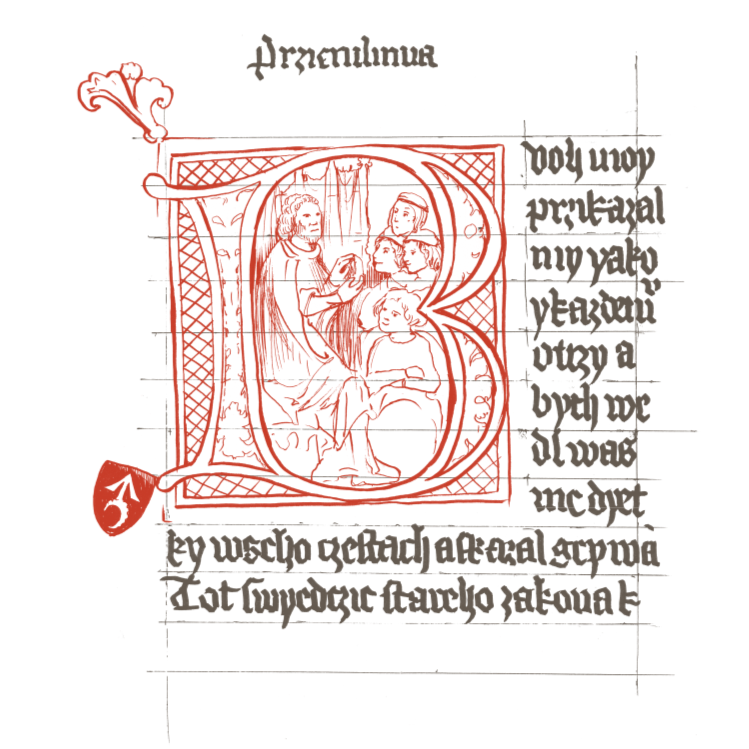 Prziemluwa
Buoh moy
przikazal
my yako
y kazdemu
otczy a
bych we
dl was
me dyet
ky wseho czestach a skazal gey wa
Tot swyedczie stareho zakona k